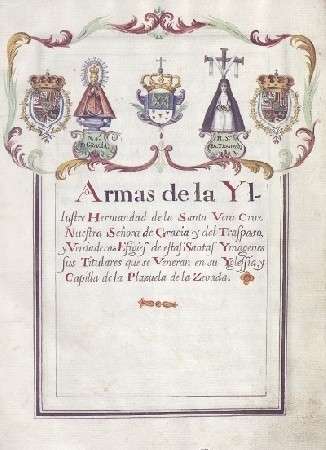 N. S.
D GRACIA
N. S.
DEL TRASPASO
Armas de la Yl-
lustre Hermandad de la Santa Vera Cruz
Nuestra Señora de Gracia y del Traspaso,
y Verdaderas Efigies de estas Santas Ymagenes
sus Titulares que se Veneran en su Yglesia, y
Capilla de la Plazuela de la Zevada.